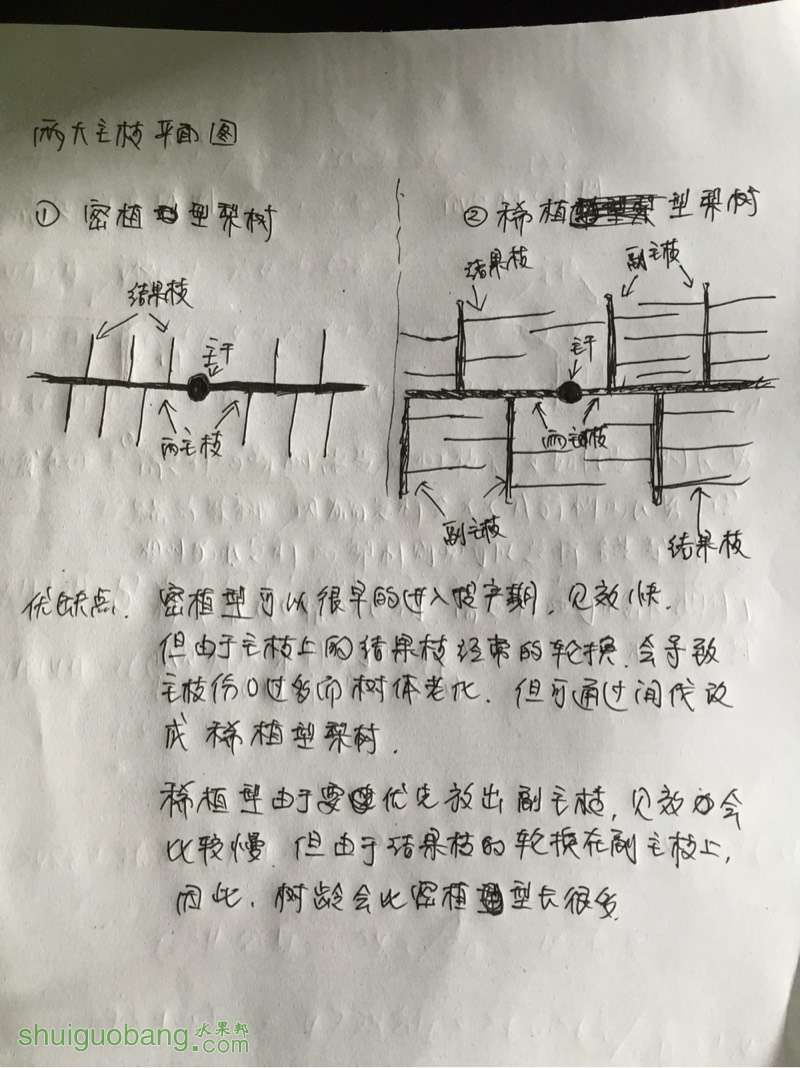 两大主枝平面图
① 密植型梨树
② 稀植型梨树
结果枝
主干
两主枝
结果枝
副主枝
主干
两主枝
副主枝
结果枝
优缺点. 密植型可以很早的进入投产期,见效快.
但由于主枝上的结果枝经常的轮换.会导致
主枝伤口过多而树体老化.但可通过间伐改
成稀植型梨树.
稀植型由于要优先放出副主枝,见效也会
比较慢.但由于结果枝的轮换在副主枝上,
因此.树龄会比密植型长很多.
shuiguobang.com
水果邦